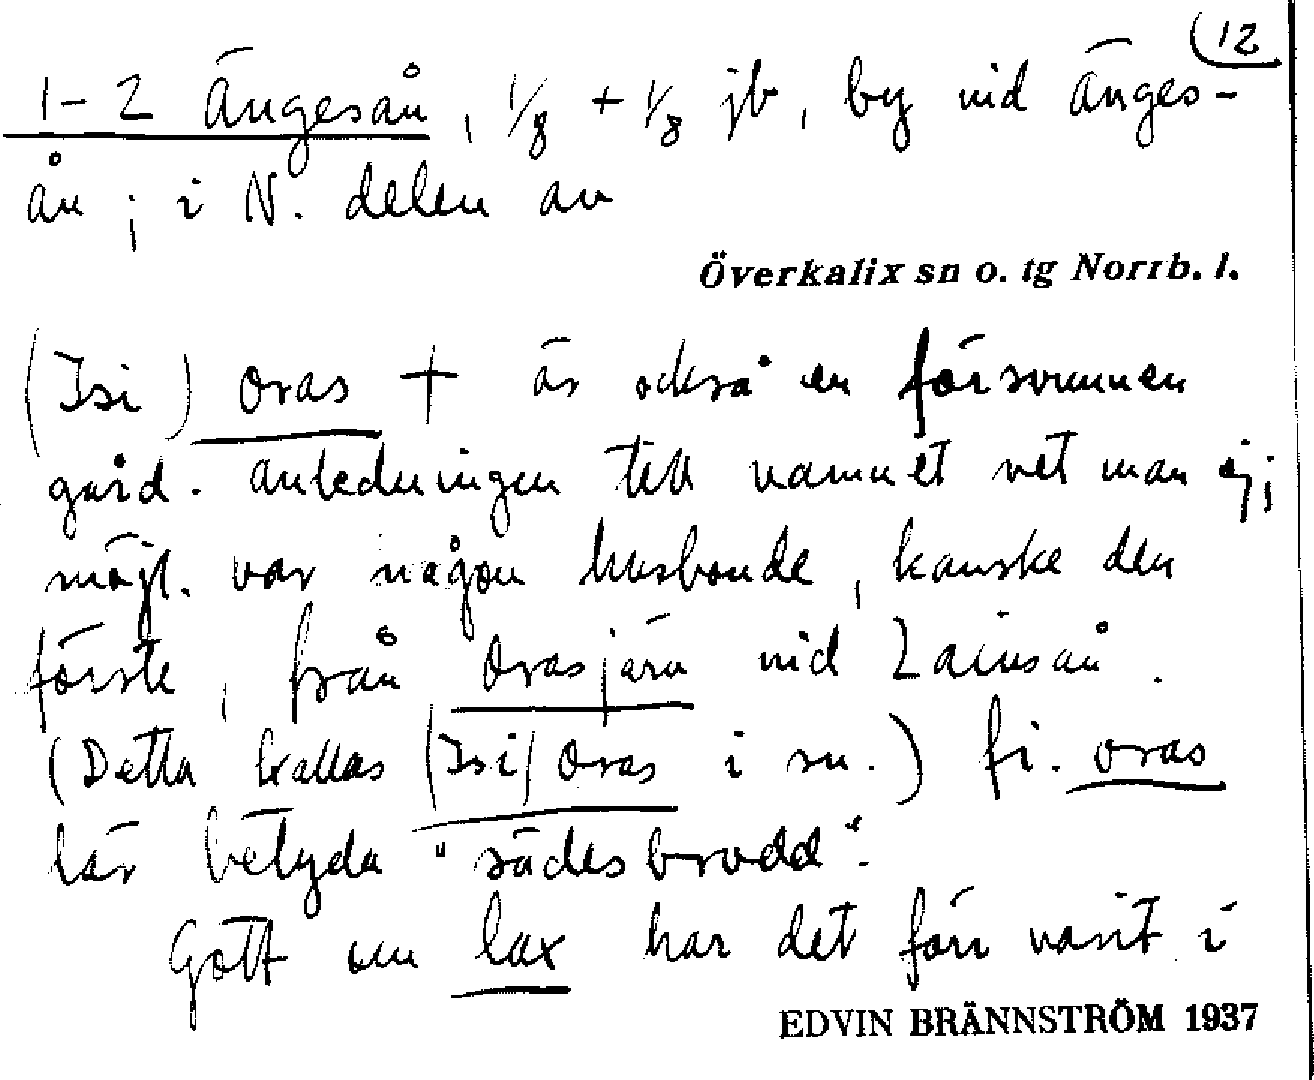 12
1-2 Ängesån, 1/8 + 1/8 jb, by vid Änges-
ån ; i N. delen av
Överkalix sn o. tg Norrb. l.
(Isi) Oras † är också en försvunnen
gård. Anledningen till namnet vet man ej;
möjl. var någon husbonde, kanske den
förste, från Orasjärv vid Lainsån.
(Detta kallas (Isi) Oras i sn.) fi. oras
lär betyda "sädesbrodd".
Gott om lax har det förr varit i
EDVIN BRÄNNSTRÖM 1937